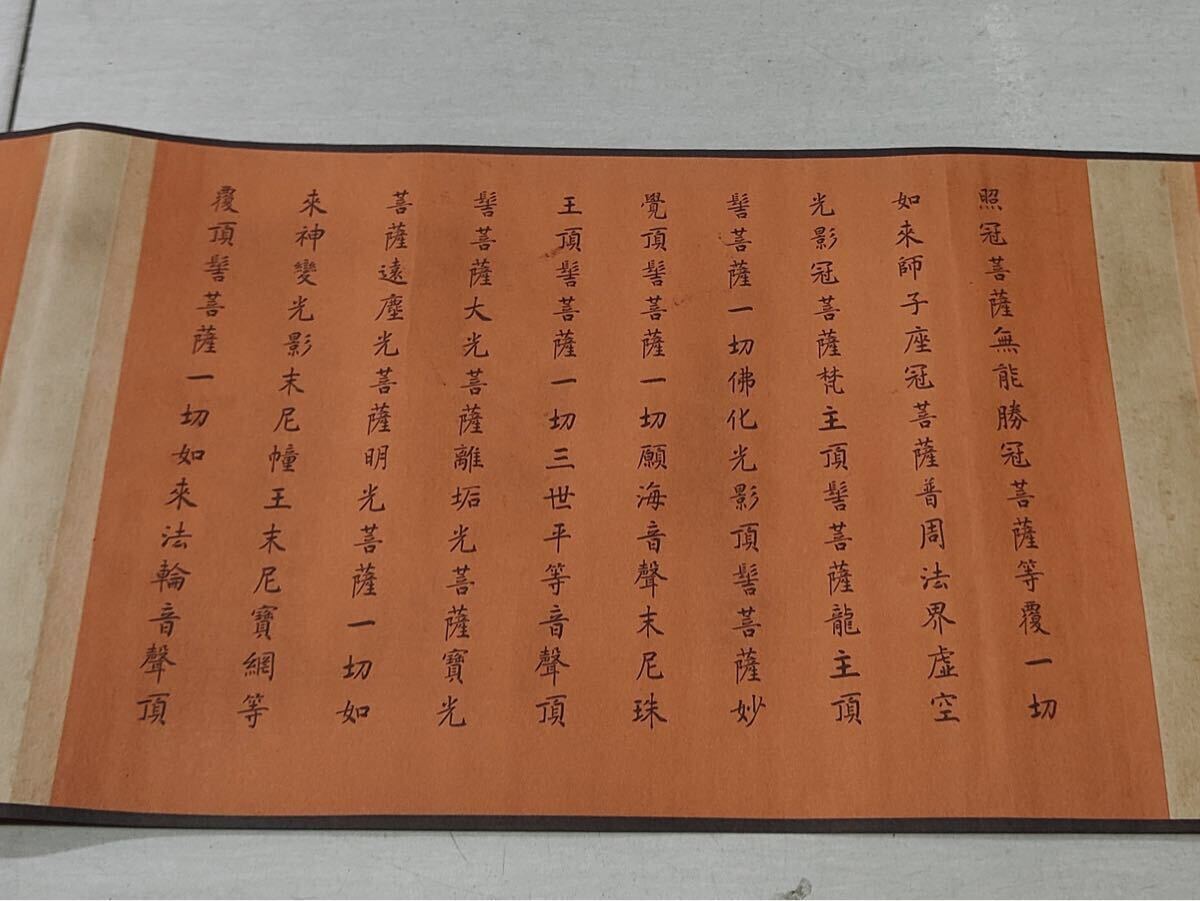 照冠菩薩無能勝冠菩薩等覆一切
如來師子座冠菩薩普周法界虛空
光影冠菩薩梵主頂髻菩薩龍主頂
髻菩薩一切佛化光影頂髻菩薩妙
覺頂髻菩薩一切願海音聲末尼珠
王頂髻菩薩一切三世平等音聲頂
髻菩薩大光菩薩離垢光菩薩寶光
菩薩遠塵光菩薩明光菩薩一切如
來神變光影末尼幢王末尼寶網等
覆頂髻菩薩一切如來法輪音聲頂